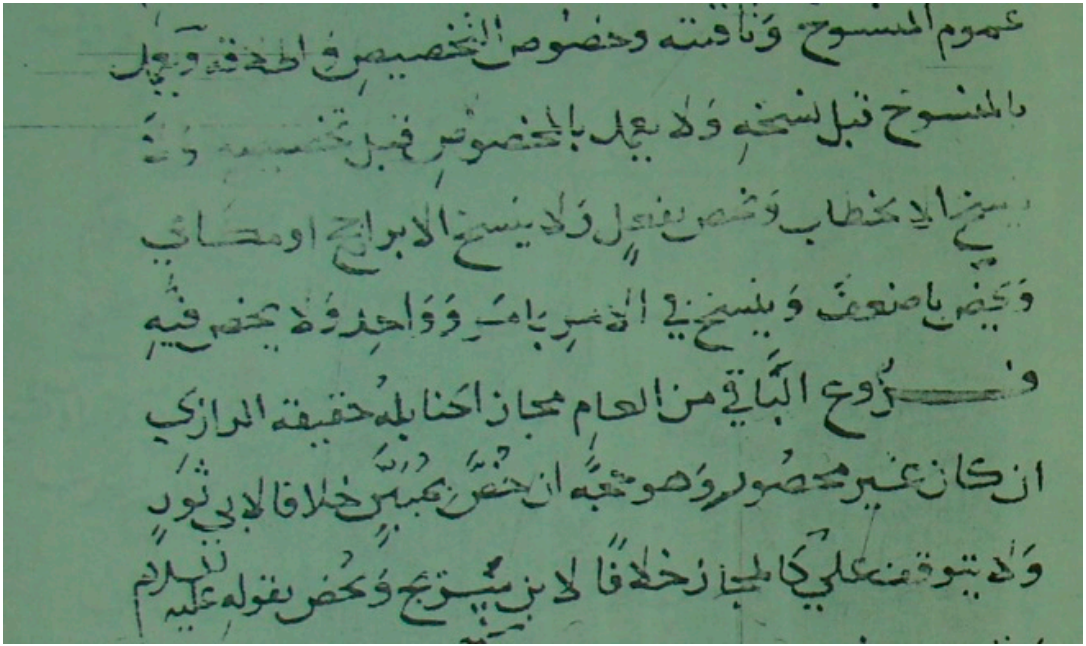 عموم المنسوخ وتاقيته وخصوص التخصيص في الحقيقة ويعمل
بالمنسوخ قبل نسخه ولا يعمل بالمخصوص قبل تخصيصه ولا
ينسخ الا بخطاب وتخص بفعل ولا ينسخ الا براجح او مكافي
ويخص باضعف وينسخ في الامر بامر وواحد ولا يخص فيه
فروع الباقي من العام مجاز الحنابلة حقيقة الرازي
ان كان غير محصور وهو حجة ان خص بمبين خلافا لابي ثور
ولا يتوقف علي كالمجاز خلافا لابن سريج وتخص بقوله عليه السلام